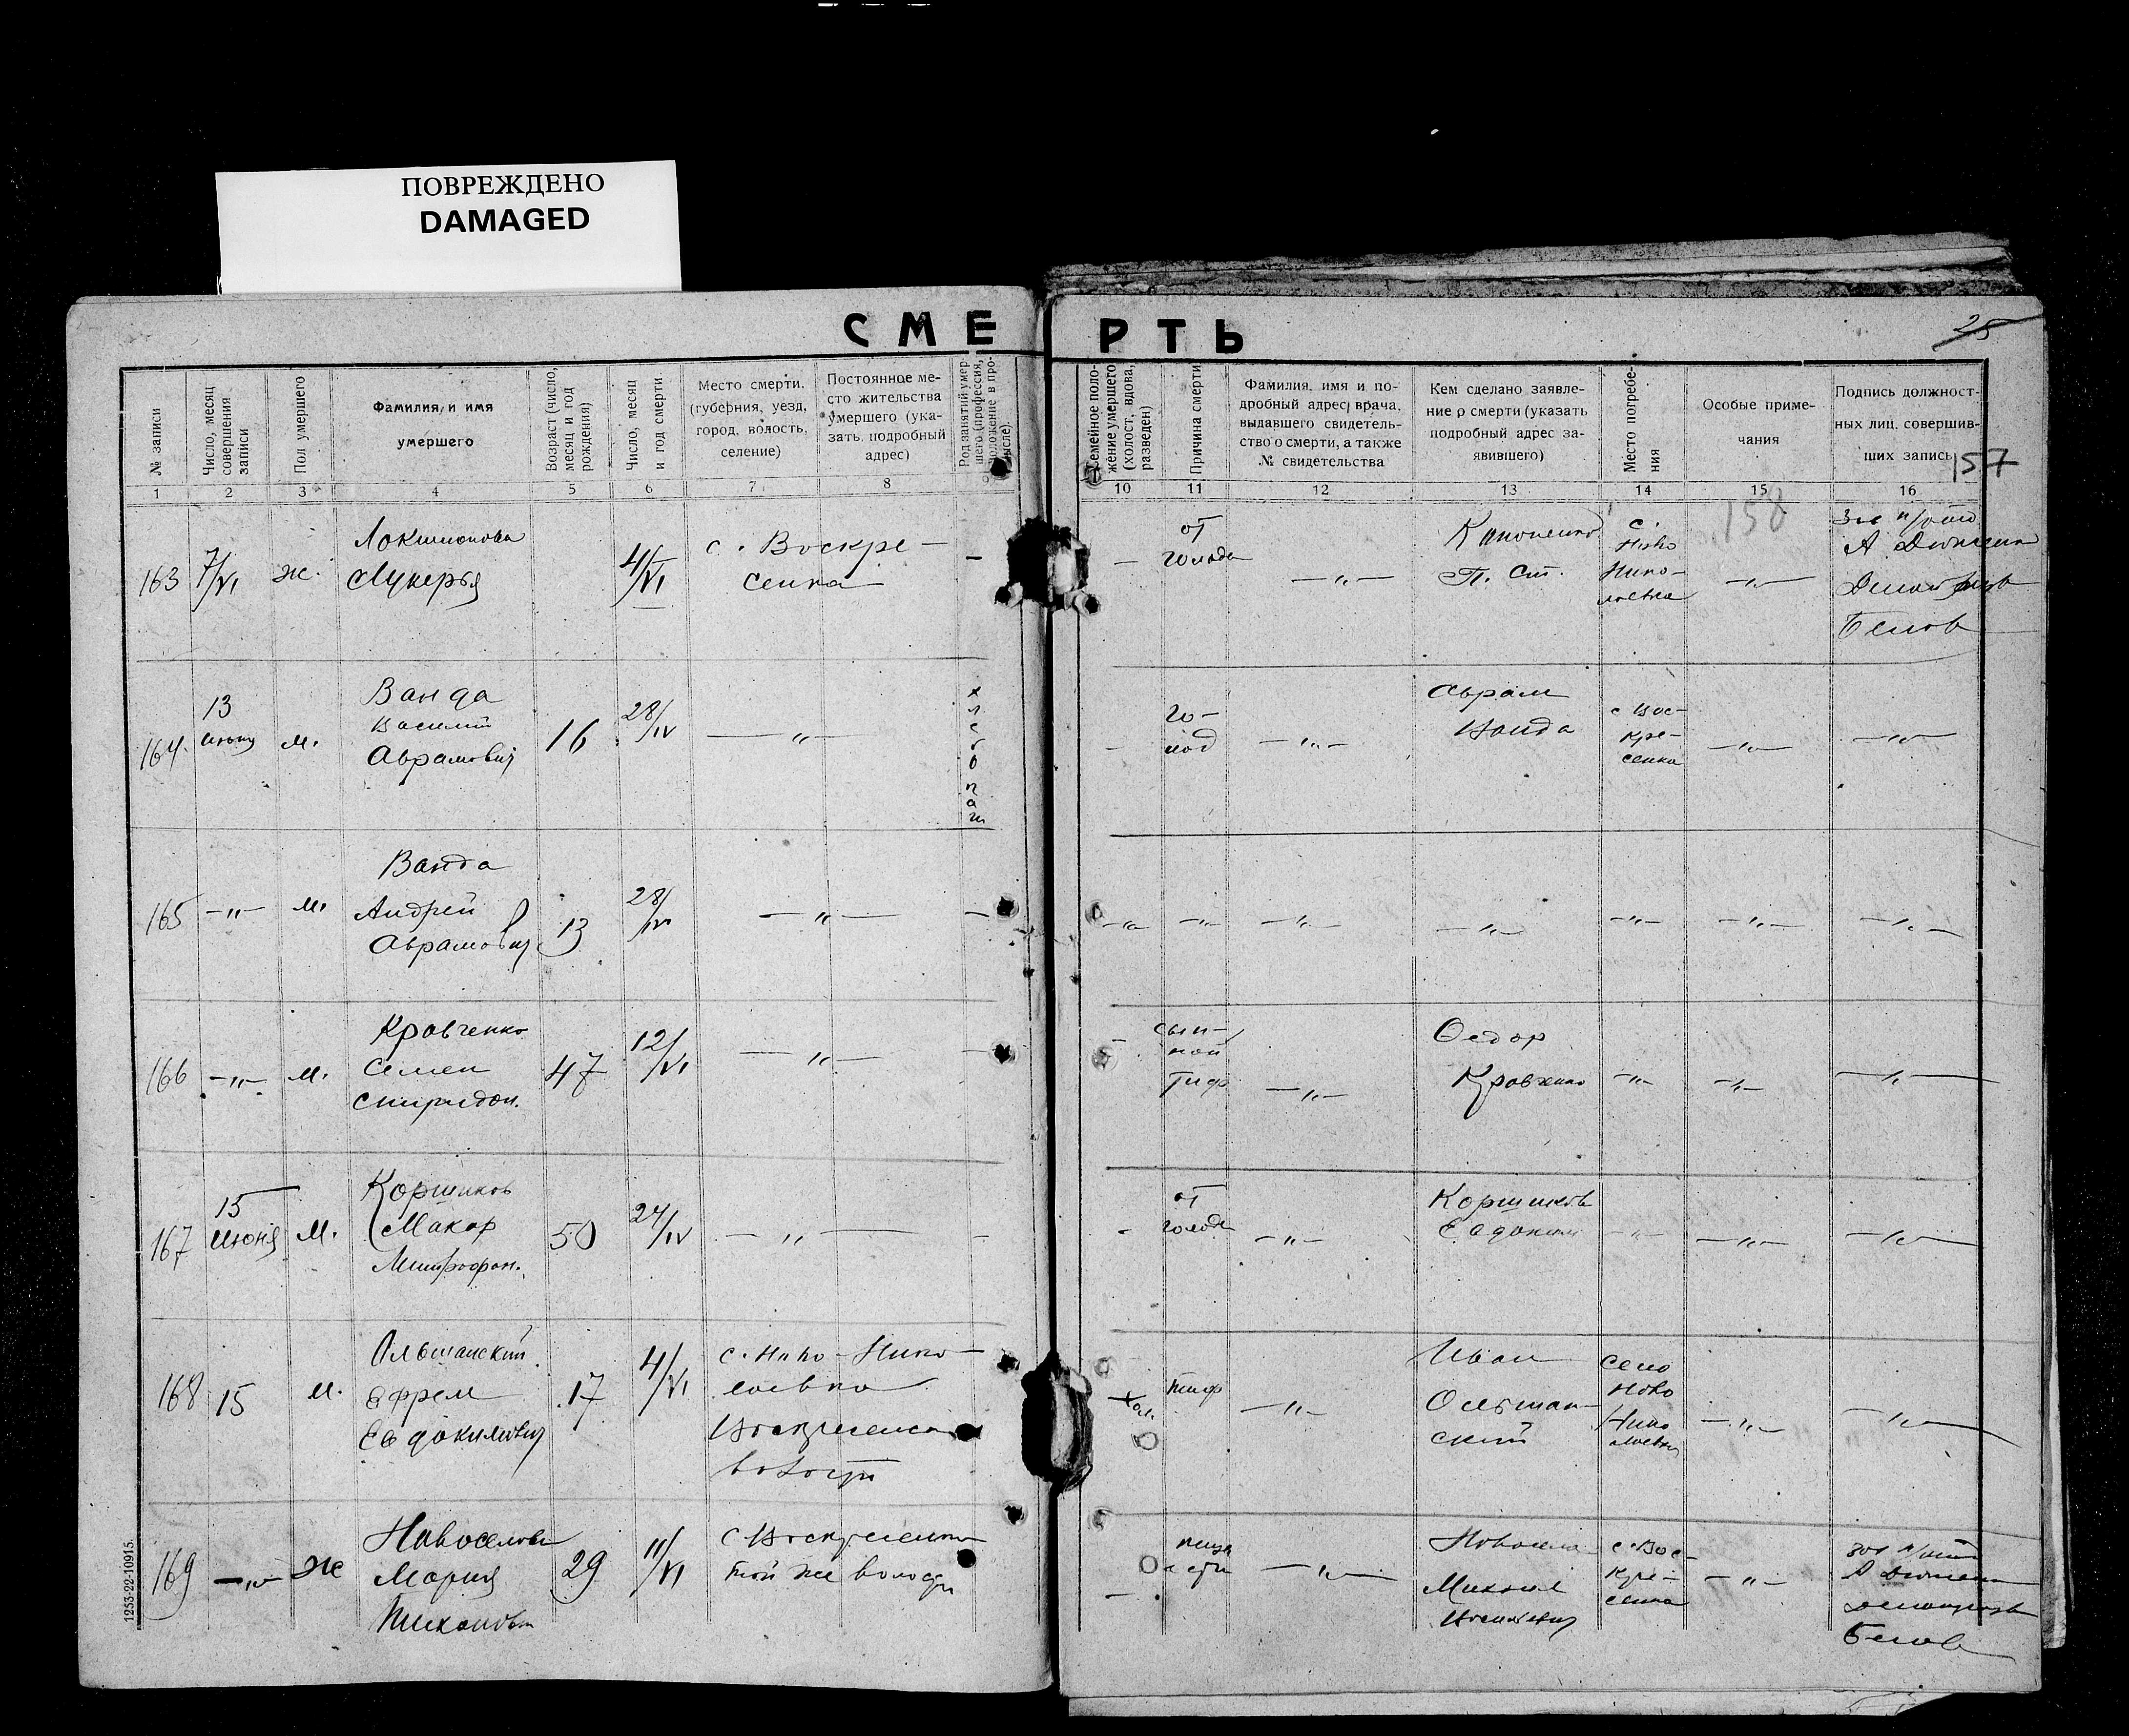 ПОВРЕЖДЕНО
DAMAGED
СМЕРТЬ
25
157
158
№ записи
Число, месяц совершения записи
Пол умершего
Фамилия и имя
умершего
Возраст (число, месяц и год рождения)
Число, месяц и год смерти.
Место смерти.
(губерния, уезд,
город, волость,
селение)
Постоянное ме-
сто жительства
умершего (ука-
зать подробный
адрес)
Род занятий умер-
шего (профессия,
положение в про-
мысле).
Семейное поло-
жение умершего
(холост, вдова,
разведен)
Причина смерти
Фамилия, имя и по-
дробный адрес врача,
выдавшего свидетель-
ство о смерти, а также
№ свидетельства
Кем сделано заявле-
ние о смерти (указать
подробный адрес за-
явившего)
Место погребе-
ния
Особые приме-
чания
Подпись должност-
ных лиц, совершив-
ших запись
1 2 3 4 5 6 7 8 9 10 11 12 13 14 15 16
163 7/VI ж.
Лукерья
4/VI
с. Воскре-
сенка
—
—
от
голода
— „ —
П. Ст.
с.
Ново
Нико-
лаевка
— „ —
Белов
164. 13
июня м.
Ванда
Василий
Аврамович
16
28/IV
— „ —
хлебопаш
-
го-
лод
— „ —
Аврам
Ванда
с Вос-
кре-
сенка
— „ —
— „ —
165 — „ — м.
Ванда
Андрей
Аврамович
13
28/IV
— „ —
—
— „ —
— „ —
— „ —
— „ —
— „ —
— „ —
— „ —
166 — „ — м.
Кравченко
Семен
Спиридон.
47
12/VI
— „ —
—
-
сып-
ной
тиф
— „ —
Федор
Кравченко
— „ —
— „ —
— „ —
167 15
июня м.
Коршиков
Макар
Митрофан.
50
24/IV
— „ —
-
-
от
голода
— „ —
Коршиков
Евдоким
— „ —
— „ —
— „ —
168 15 м.
Ольшанский
Ефрем
Евдокимович
17
4/VI
с. Ново-Нико-
лаевка
Воскресенской
волости
хол.
тиф
— „ —
Иван
Ольшан-
ский
село
Ново
Нико
лаевка
— „ —
— „ —
169 — „ — ж
Новоселова
Мария
Тихоновн
29
11/VI
с Воскресенка
той же волости
—
— „ —
Михаил
с. Вос-
кре-
сенка
— „ —
Белов
1253-22-10915.